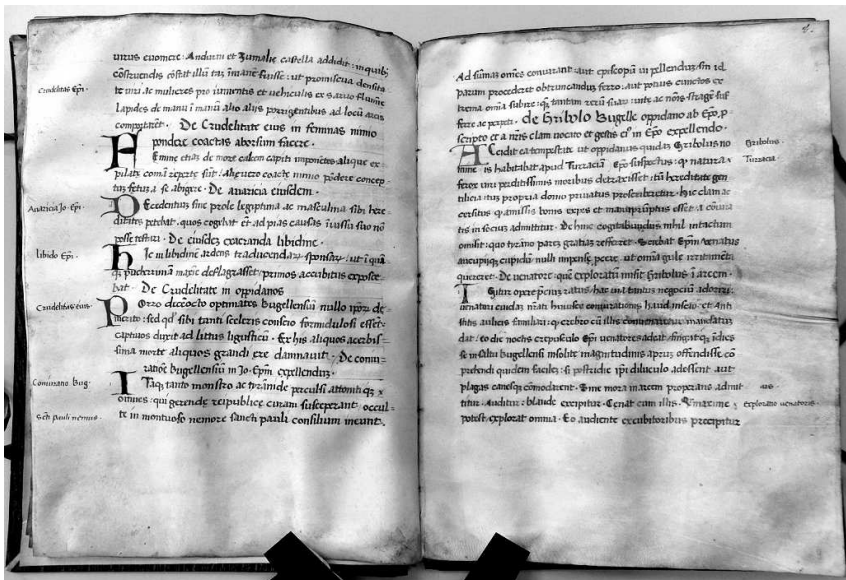 uirus euomere · Andurni et Zumalie castella addidit : in quibꝫ
cõstruendis cõstat illũ tã ĩmanẽ fuisse : ut promiscua densita
te uiri ac mulieres pro iumentis et uehiculis ex Saruo flumine
Crudelitas Ep̃i ·
lapides de manu ĩ manũ alio aliis porrigentibus ad locũ arcis
comportarẽt · De Crudelitate eius in feminas nimio
pondere coactas aborsum facere ·
Femine etias de more calcem capiti
pilatẽ comã reperte sũt : Aliquãdo coacte nimio põdere concep
tus fetus a se abigere · De auaricia eiusdem ·
Auaricia Jo · Ep̃i ·
Decedentium sine prole legiptima ac masculina sibi here
ditates petebat · quos cogebat et ad pias causas iussu suo nõ
posse testari · De eiusdẽ execranda libidine ·
libido Ep̃i ·
Hic in libidinẽ ardens traducendas sponsas : ut ĩ quã
qꝫ pudicitiam maxie deflagrasset : primos accubitus exposce
bat · De Crudelitate in oppidanos
Crudelitas eius ·
Porro decẽ octo optimates bugellensiũ nullo de=
merito : sed qd' sibi tanti sceleris conscio formidulosi essẽt
captiuos duxit ad litus ligusticũ · Ex his aliquos acerbis=
sima morte aliquos grandi ere damnauit · De coniu=
ratiõe bugellensiũ in Jo · Ep̃m expellendũ ·
Coniuratio Bug ·
Itaqꝫ tanto monstro ac tirãnide perculsi attoniti qꝫ
omnes : qui gerende reipublice curam susceperant : occul=
Scti pauli nemus ·
te in montuoso nemore sancti pauli consilium ineunt ·
Ad sumã omẽs coniurant : aut episcopũ ĩ pellendũ : sin id
parum procederet obtruncandũ ferro : aut potius cunctos ex
trema omĩa subire : qꝫ tantam rerũ suarũ ac nõis stragẽ suf
ferre ac perpeti · de Gribolo Bugelle oppidano ab ep̃o ,p=
scripto et a nr̃is clam uocato et gestis eiꝰ in Ep̃o expellendo ·
Accidit ea tempestate ut oppidanus quidã Gribolus no
Gribolus
mine is habitabat apud Turzaciã Ep̃o suspectus : qꝫ natura
Turzacia
ferox uiri perditissimis moribus detraxisset : ĩtũ hereditate gen
tilicia ĩtus propria domo priuatus proscriberetur · hic clam ac
cersitus : amissis bonis expes et esset : a coniura
tis in socius admittitur · De hinc cogitabundus nihil intactum
omisit : quo tyrãno pares gratias refferret · Sciebat Ep̃m uenatus
aucupiiqꝫ cupidũ nulli impense pecie : ut omĩa gule irritamẽta
quereret · De uenatore : quẽ exploratũ misit Gribolus ĩ arcem ·
Igitur opere pretius ratus hac uia tantus negociũ adoriri :
uenatori cuidã nr̃ati huiusce coniurationis haud inscio : et Anti
stitis aulicis familiari : qꝫ crebro cũ illis mandatũ
dat : eo die noctis crepusculo Ep̃i uenatores adeat : fingat qꝫ ĩdies
se in saltu bugellensi insolite magnitudinis aprus offendisse cõ
prehendi quidem faciles : si postridie ipsi diluculo adessent aut
plagas canesqꝫ cõmodarent · Sine mora in arcem properans admit
titur · Auditur : blande excipitur · Cẽnat cum illis · Q maxime
Exploratio uenatoris ·
potest : explorat omnia · Eo audiente excubitoribus precipitur